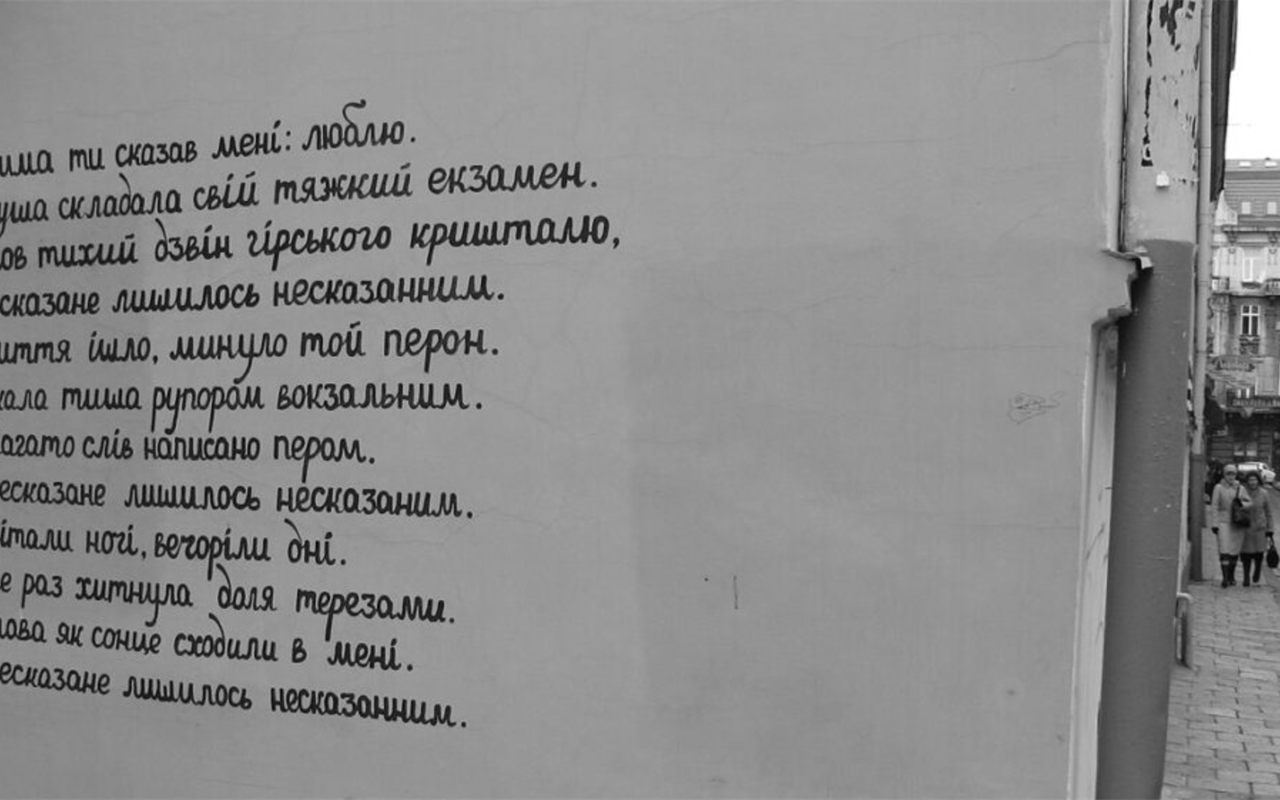 има ти сказав мені: люблю.
уша складала свій тяжкий екзамен.
ов тихий дзвін гірського кришталю,
сказане лишилось несказанним.
иття ішло, минуло той перон.
кала тиша рупором вокзальним.
агато слів написано пером.
есказане лишилось несказаним.
італи ночі, вечоріли дні.
е раз хитнула доля терезами.
лова як сонце сходили в мені.
есказане лишилось несказанним.